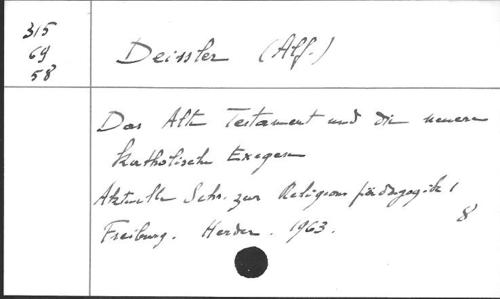 315
69
58
Deissler (Alf.)
Das Alte Testament und die neuere
katholische Exegese
Aktuelle Schr. zur Religionspädagogik 1
Freiburg. Herder. 1963.
8